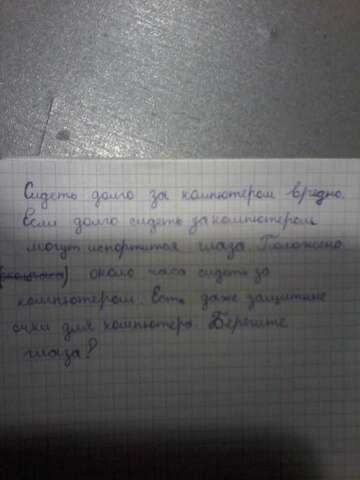 Сидеть долго за компютером вредно.
Если долго сидеть за компютером
могут испортится глаза. Положено
около часа сидеть за
компютером. Есть даже защитние
очки для компютера. Берегите
глаза!